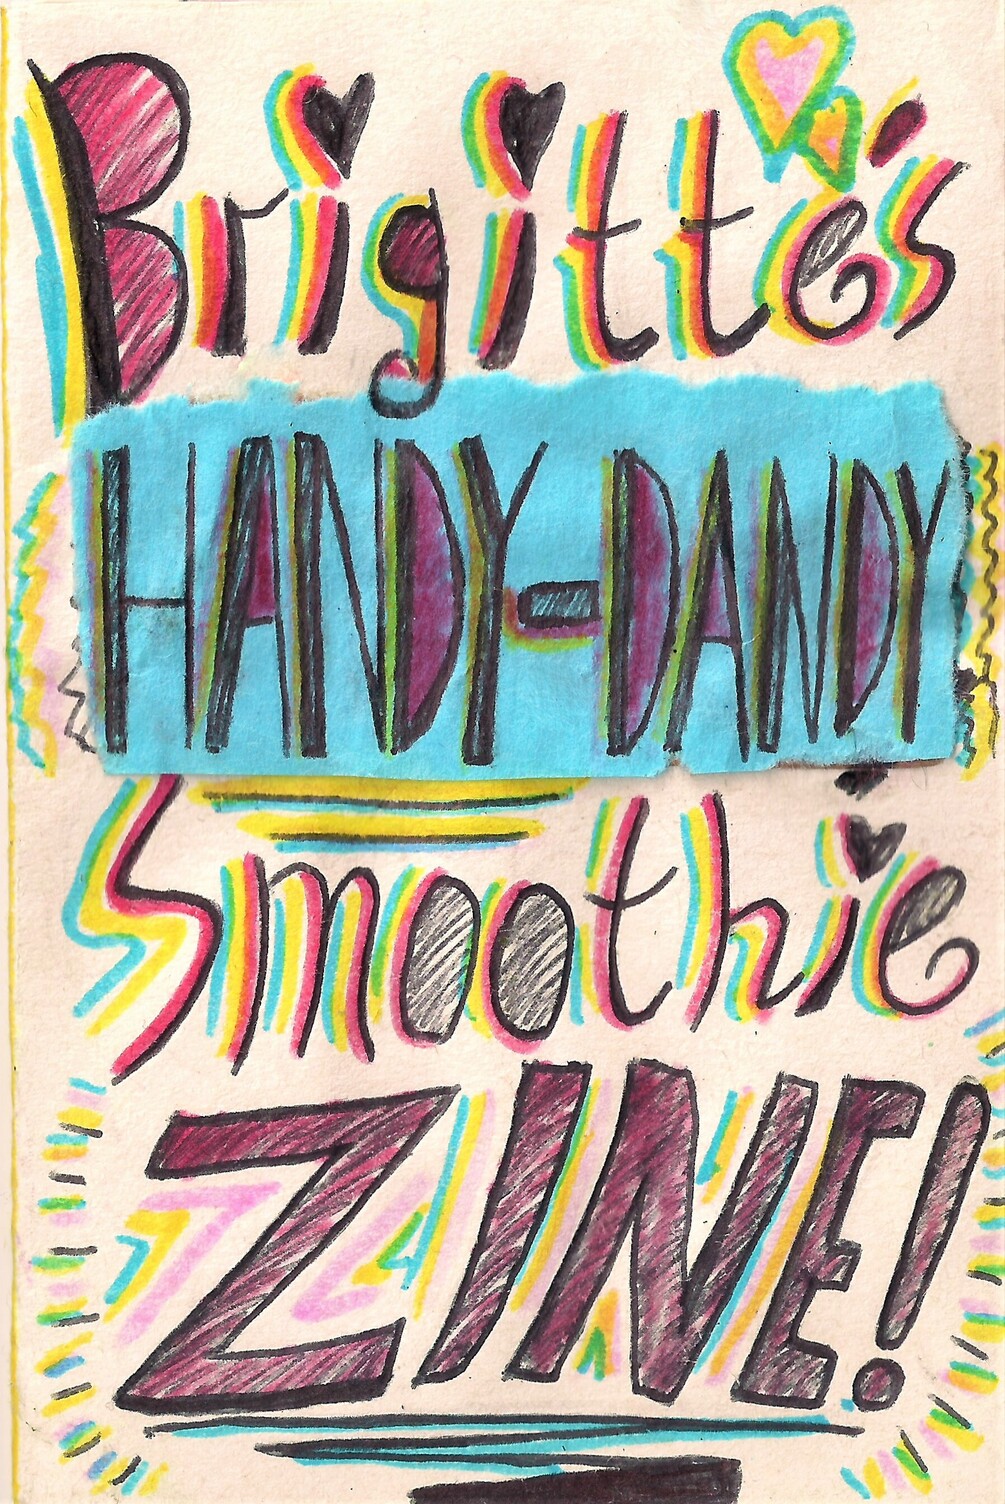 Brigitte's
HANDY-DANDY
Smoothie
ZINE!